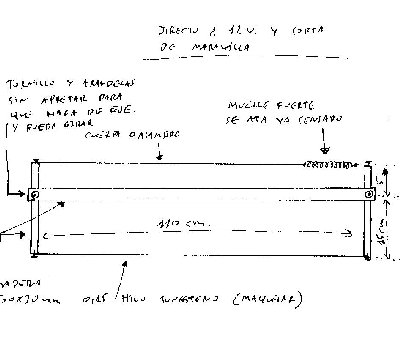 DIRECTO A 12 V. Y CORTA
DE MARAVILLA
TORNILLO Y ARANDELAS
SIN APRETAR PARA
QUE HAGA DE EJE.
Y PUEDA GIRAR
CUERDA O ALAMBRE
MUELLE FUERTE
SE ATA YA TENSADO
110 cm.
15 cm
MADERA
HILO (MAQUINAR)